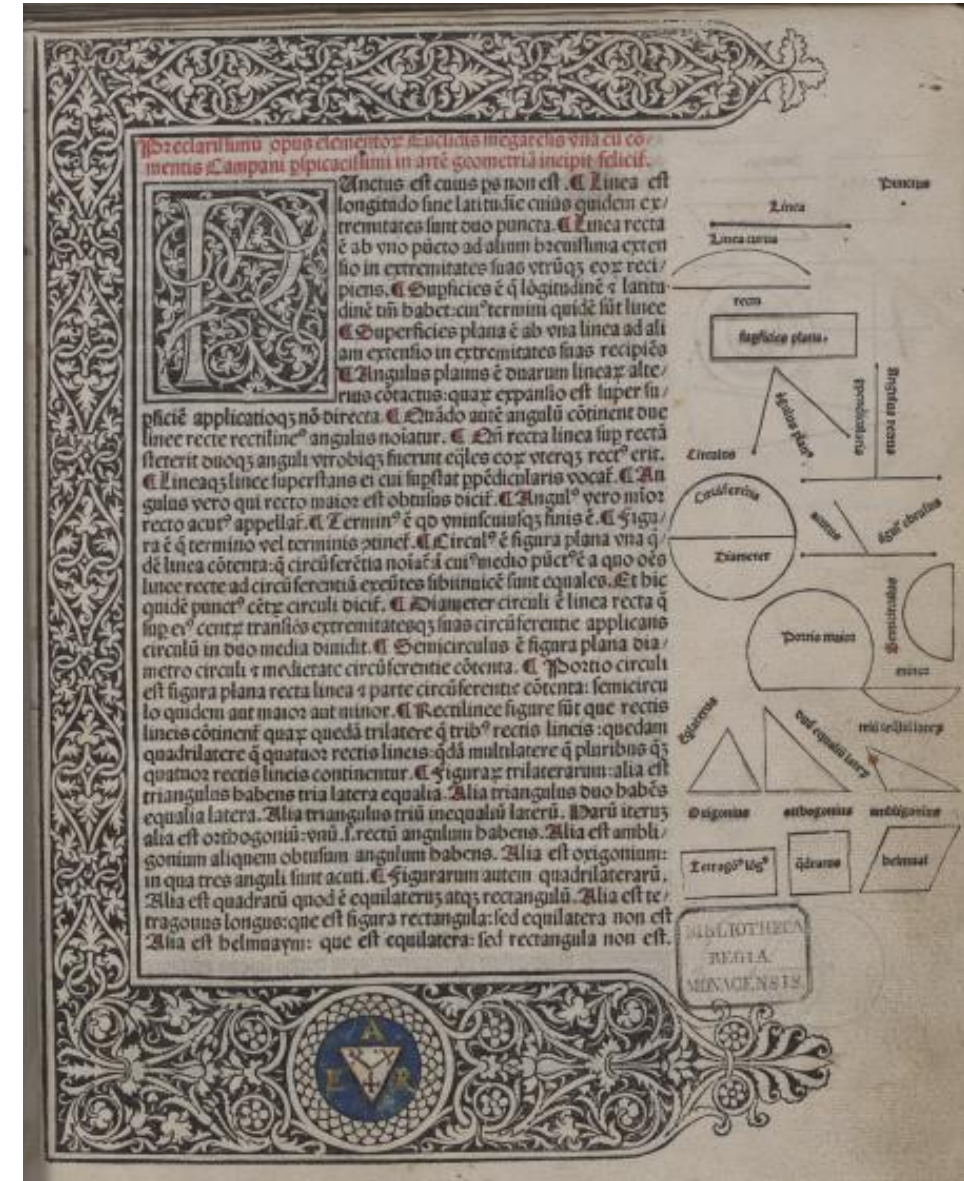 Preclarissimū opus elementoꝝ Euclidis megarēsis vna cū cō/
mentis Campani pspicacissimi in artē geometriā incipit felicit̄.
PUnctus est cuius ps non est. ¶ Linea est
longitudo sine latitudie cuius quidem ex/
tremitates sunt duo puncta. ¶ Linea recta
ē ab vno pūcto ad alium breuissima exten
sio in extremitates suas vtrūqꝫ eoꝝ reci/
piens. ¶ Supficies ē q̄ lōgitudinē ⁊ latitu
dinē tm̄ habet: cuiꝰ termini quidē sūt linee
¶ Superficies plana ē ab vna linea ad ali
am extensio in extremitates suas recipiēs
¶ Angulus planus ē duarum lineaꝝ alte/
rius cōtactus: quaꝝ expansio est super su/
pficiē applicatioqꝫ nō directa. ¶ Quādo autē angulū cōtinent due
linee recte rectilineꝰ angulus noiatur. ¶ Qn̄ recta linea sup rectā
steterit duoqꝫ anguli vtrobiqꝫ fuerint eq̄les eoꝝ vterqꝫ rectꝰ erit.
¶ Lineaqꝫ linee superstans ei cui supstat ppēdicularis vocat̄. ¶ An
gulus vero qui recto maior est obtusus dicit̄. ¶ Angulꝰ vero mīor
recto acutꝰ appellat̄. ¶ Terminꝰ ē qd vniuscuiusqꝫ finis ē. ¶ Figu/
ra ē q̄ termino vel terminis ɔtinet̄. ¶ Circulꝰ ē figura plana vna q/
dē linea cōtenta: q̄ circūferētia noiat̄: ī cuiꝰ medio pūctꝰ ē a quo oēs
linee recte ad circūferentiā exeūtes sibiinuicē sunt equales. Et hic
quidē punctꝰ cētꝝ circuli dicit̄. ¶ Diameter circuli ē linea recta q̄
sup eiꝰ centꝝ trāsiēs extremitatesqꝫ suas circūferentie applicans
circulū in duo media diuidit. ¶ Semicirculus ē figura plana dia/
metro circuli ⁊ medietate circūferentie cōtenta. ¶ Portio circuli
est figura plana recta linea ⁊ parte circūferentie cōtenta: semicircu
lo quidem aut maior aut minor. ¶ Rectilinee figure sūt que rectis
lineis cōtinent̄ quaꝝ quedā trilatere q̄ tribꝰ rectis lineis: quedam
quadrilatere q̄ quatuor rectis lineis: q̄dā multilatere q̄ pluribus q̄ꝫ
quatuor rectis lineis continentur. ¶ Figuraꝝ trilaterarum: alia est
triangulus habens tria latera equalia. Alia triangulus duo habēs
equalia latera. Alia triangulus triū inequaliū laterū. Harū iteruꝫ
alia est orthogoniū: vnū .s. rectū angulum habens. Alia est ambli/
gonium aliquem obtusum angulum habens. Alia est oxigonium:
in qua tres anguli sunt acuti. ¶ Figurarum autem quadrilaterarū.
Alia est quadratū quod ē equilaterū atqꝫ rectangulū. Alia est te/
tragonus longus: que est figura rectangula: sed equilatera non est
Alia est helmuaym: que est equilatera: sed rectangula non est.
Punctus
Linea
Linea curua
recta
supficies plana.
āgulus planꝰ
ppendicularis
Angulus rectus
Circulus
Circūferētia
Diameter
acutus
āgulꝰ obtusus
Portio maior
Semicirculus
minor
Eq̄laterus
duū equaliū lateꝝ
Oxigonius
orthogonius
ambligonius
Tetragōꝰ lōgꝰ
q̄dratus
BIBLIOTHECA
REGIA
MONACENSIS.
A
E R